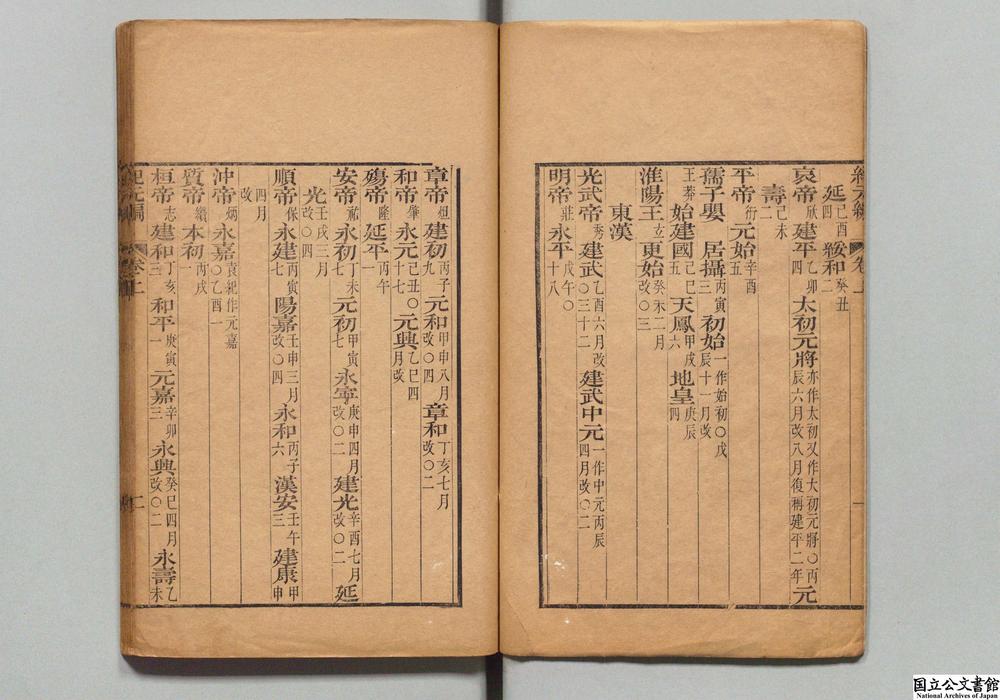 紀元編 卷上 一
延四己酉 綏和二癸丑
哀帝欣 建平四乙卯 太初元將亦作太初又作大初元將〇丙辰六月改八月復稱建平二年 元
壽二己未
平帝衎 元始五辛酉
孺子嬰 居攝三丙寅 初始一作始初〇戊辰十一月改
王莽 始建國五己巳 天鳳六甲戌 地皇四庚辰
淮陽王玄 更始癸未二月改〇三
東漢
光武帝秀 建武乙酉六月改〇三十二 建武中元一作中元丙辰四月改〇二
明帝莊 永平戊午〇十八
章帝炟 建初九丙子 元和甲申八月改〇四 章和丁亥七月改〇二
和帝肇 永元己丑〇十七 元興乙巳四月改
殤帝隆 延平一丙午
安帝祐 永初七丁未 元初七甲寅 永寧庚申四月改〇二 建光辛酉七月改〇二 延
光壬戌三月改〇四
順帝保 永建七丙寅 陽嘉壬申三月改〇四 永和六丙子 漢安三壬午 建康甲申
四月改
沖帝炳 永嘉袁紀作元嘉〇乙酉一
質帝纘 本初一丙戌
桓帝志 建和三丁亥 和平一庚寅 元嘉三辛卯 永興癸巳四月改〇二 永壽乙未
紀元編 卷上 二
国立公文書館
National Archives of Japan